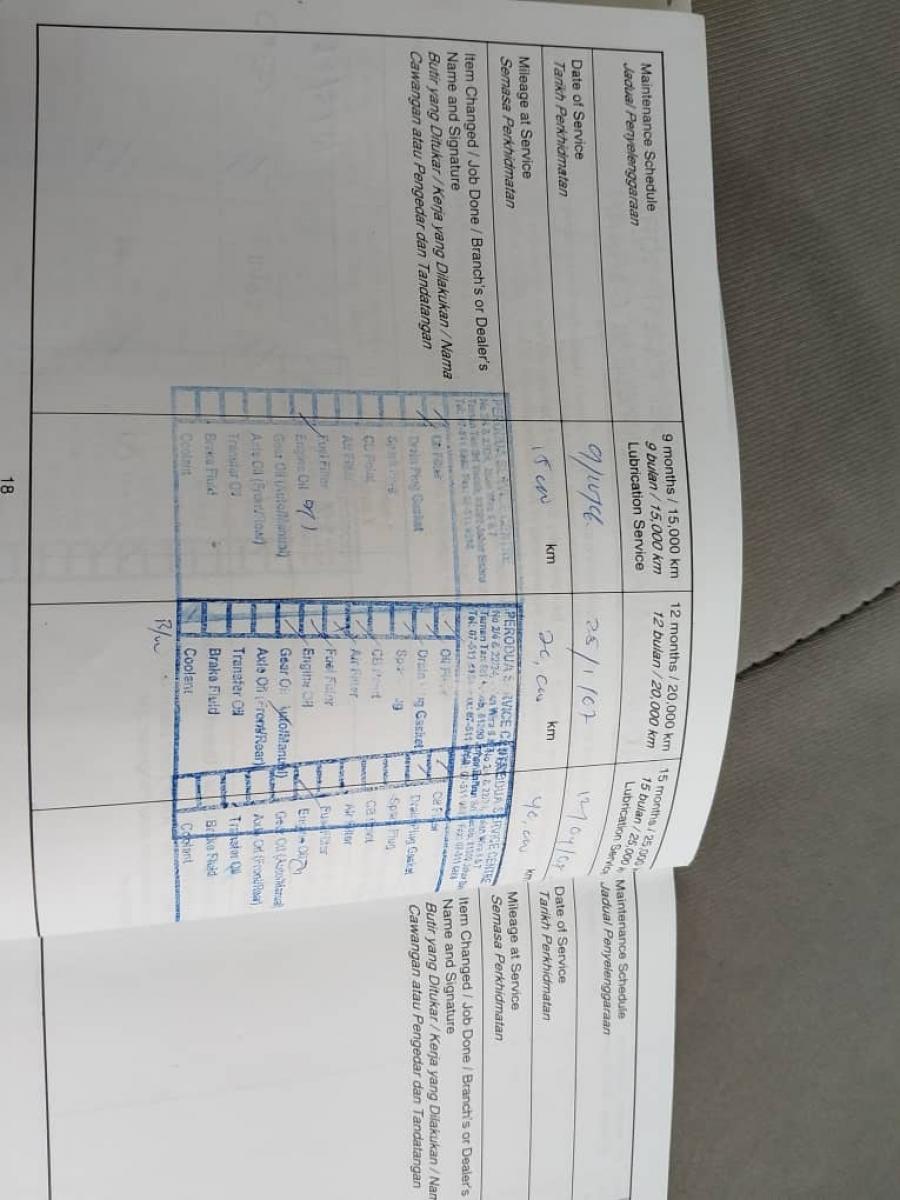 Maintenance Schedule
Jadual Penyelenggaraan
9 months / 15,000 km
9 bulan / 15,000 km
Lubrication Service
12 months / 20,000 km
12 bulan / 20,000 km
15 months / 25,000
15 bulan / 25,000
Lubrication Servic
Date of Service
Tarikh Perkhidmatan
9/10/06
25/1/07
12/04/07
Mileage at Service
Semasa Perkhidmatan
km
km
km
Item Changed / Job Done / Branch's or Dealer's
Name and Signature
Butir yang Ditukar / Kerja yang Dilakukan / Nama
Cawangan atau Pengedar dan Tandatangan
Oil Filter
Drain Plug Gasket
Spark Plug
CB Point
Air Filter
Fuel Filter
Engine Oil
Gear Oil (Auto/Manual)
Axle Oil (Front/Rear)
Transfer Oil
Brake Fluid
Coolant
PERODUA SERVICE CENTRE
Oil Filter
Drain Plug Gasket
CB Point
Air Filter
Fuel Filter
Engine Oil
Gear Oil (Auto/Manual)
Axle Oil (Front/Rear)
Transfer Oil
Brake Fluid
Coolant
PERODUA SERVICE CENTRE
Oil Filter
Drain Plug Gasket
Spark Plug
CB Point
Air Filter
Fuel Filter
Engine Oil
Gear Oil (Auto/Manual
Axle Oil (Front/Rear)
Transfer Oil
Brake Fluid
Coolant
18
Maintenance Schedule
Jadual Penyelenggaraan
Date of Service
Tarikh Perkhidmatan
Mileage at Service
Semasa Perkhidmatan
Item Changed / Job Done / Branch's or Dealer's
Name and Signature
Butir yang Ditukar / Kerja yang Dilakukan / Nam
Cawangan atau Pengedar dan Tandatangan